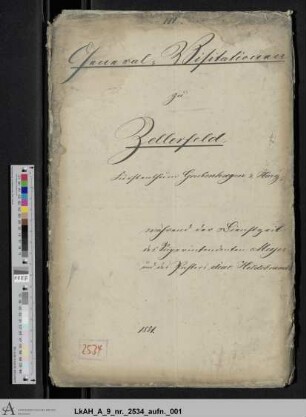 General-Visitationen
zu
Zellerfeld
Fürstenthum Grubenhagen u. Harz
während der Dienstzeit
des Superintendenten Meyer
und des Pastors
2534
LkAH_A_9_nr._2534_aufn._001